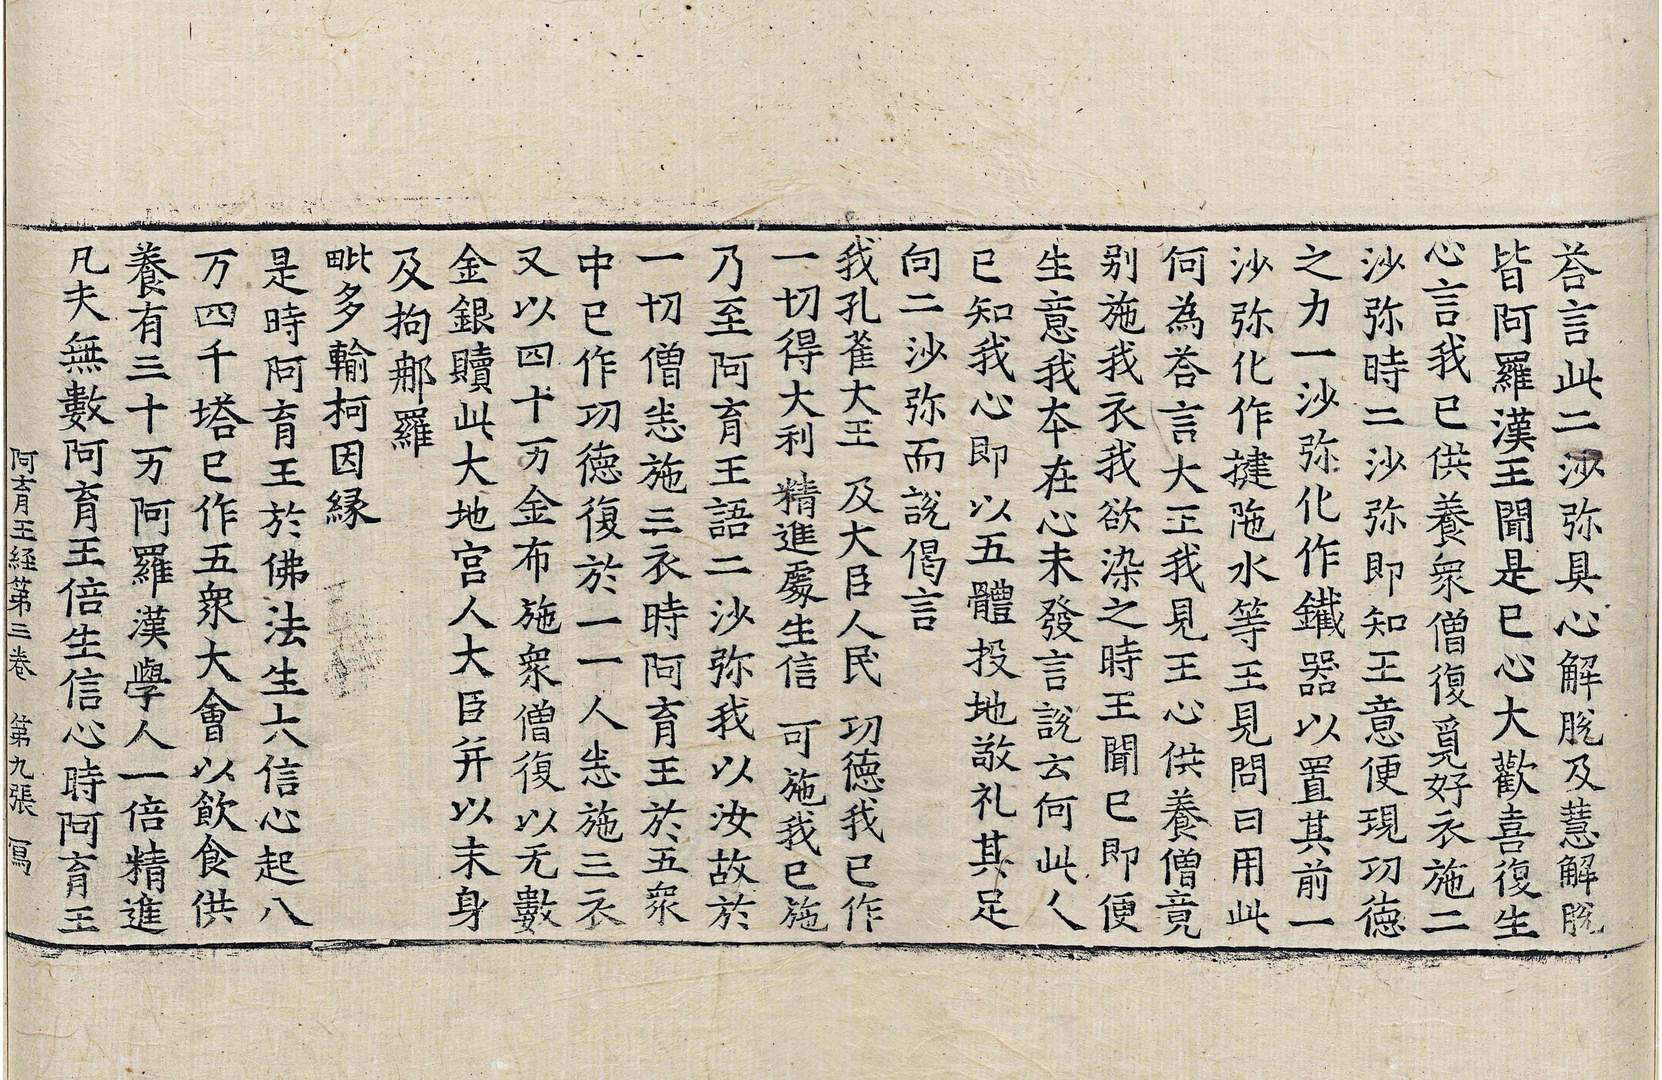 荅言此二沙弥具心解脫及慧解脫
皆阿羅漢王聞是已心大歡喜復生
心言我已供養衆僧復覓好衣施二
沙弥時二沙弥即知王意便現功德
之力一沙弥化作鐵器以置其前一
沙弥化作揵陁水等王見問曰用此
何為荅言大王我見王心供養僧竟
别施我衣我欲染之時王聞已即便
生意我夲在心未發言說云何此人
已知我心即以五體投地敬礼其足
向二沙弥而說偈言
我孔雀大王 及大臣人民 功德我已作
一切得大利 精進處生信 可施我已施
乃至阿育王語二沙弥我以汝故於
一切僧悉施三衣時阿育王於五衆
中已作功德復於一一人悉施三衣
又以四十万金布施衆僧復以无數
金銀贖此大地宫人大臣并以末身
及拘𨚗羅
毗多輸柯因緣
是時阿育王於佛法生大信心起八
万四千塔已作五衆大會以飲食供
養有三十万阿羅漢學人一倍精進
凡夫無數阿育王倍生信心時阿育王
阿育王経第三卷 第九張 冩